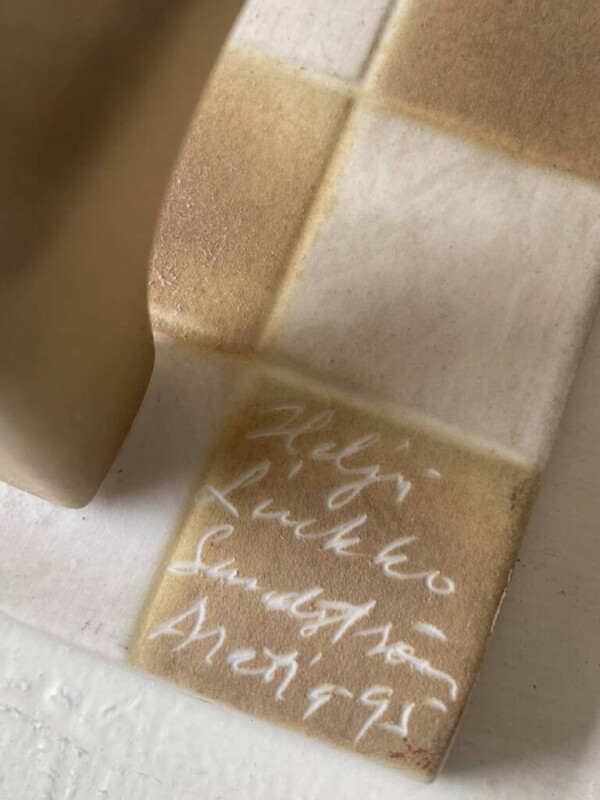 Heljä
Liukko
Sundström
Arabia 95